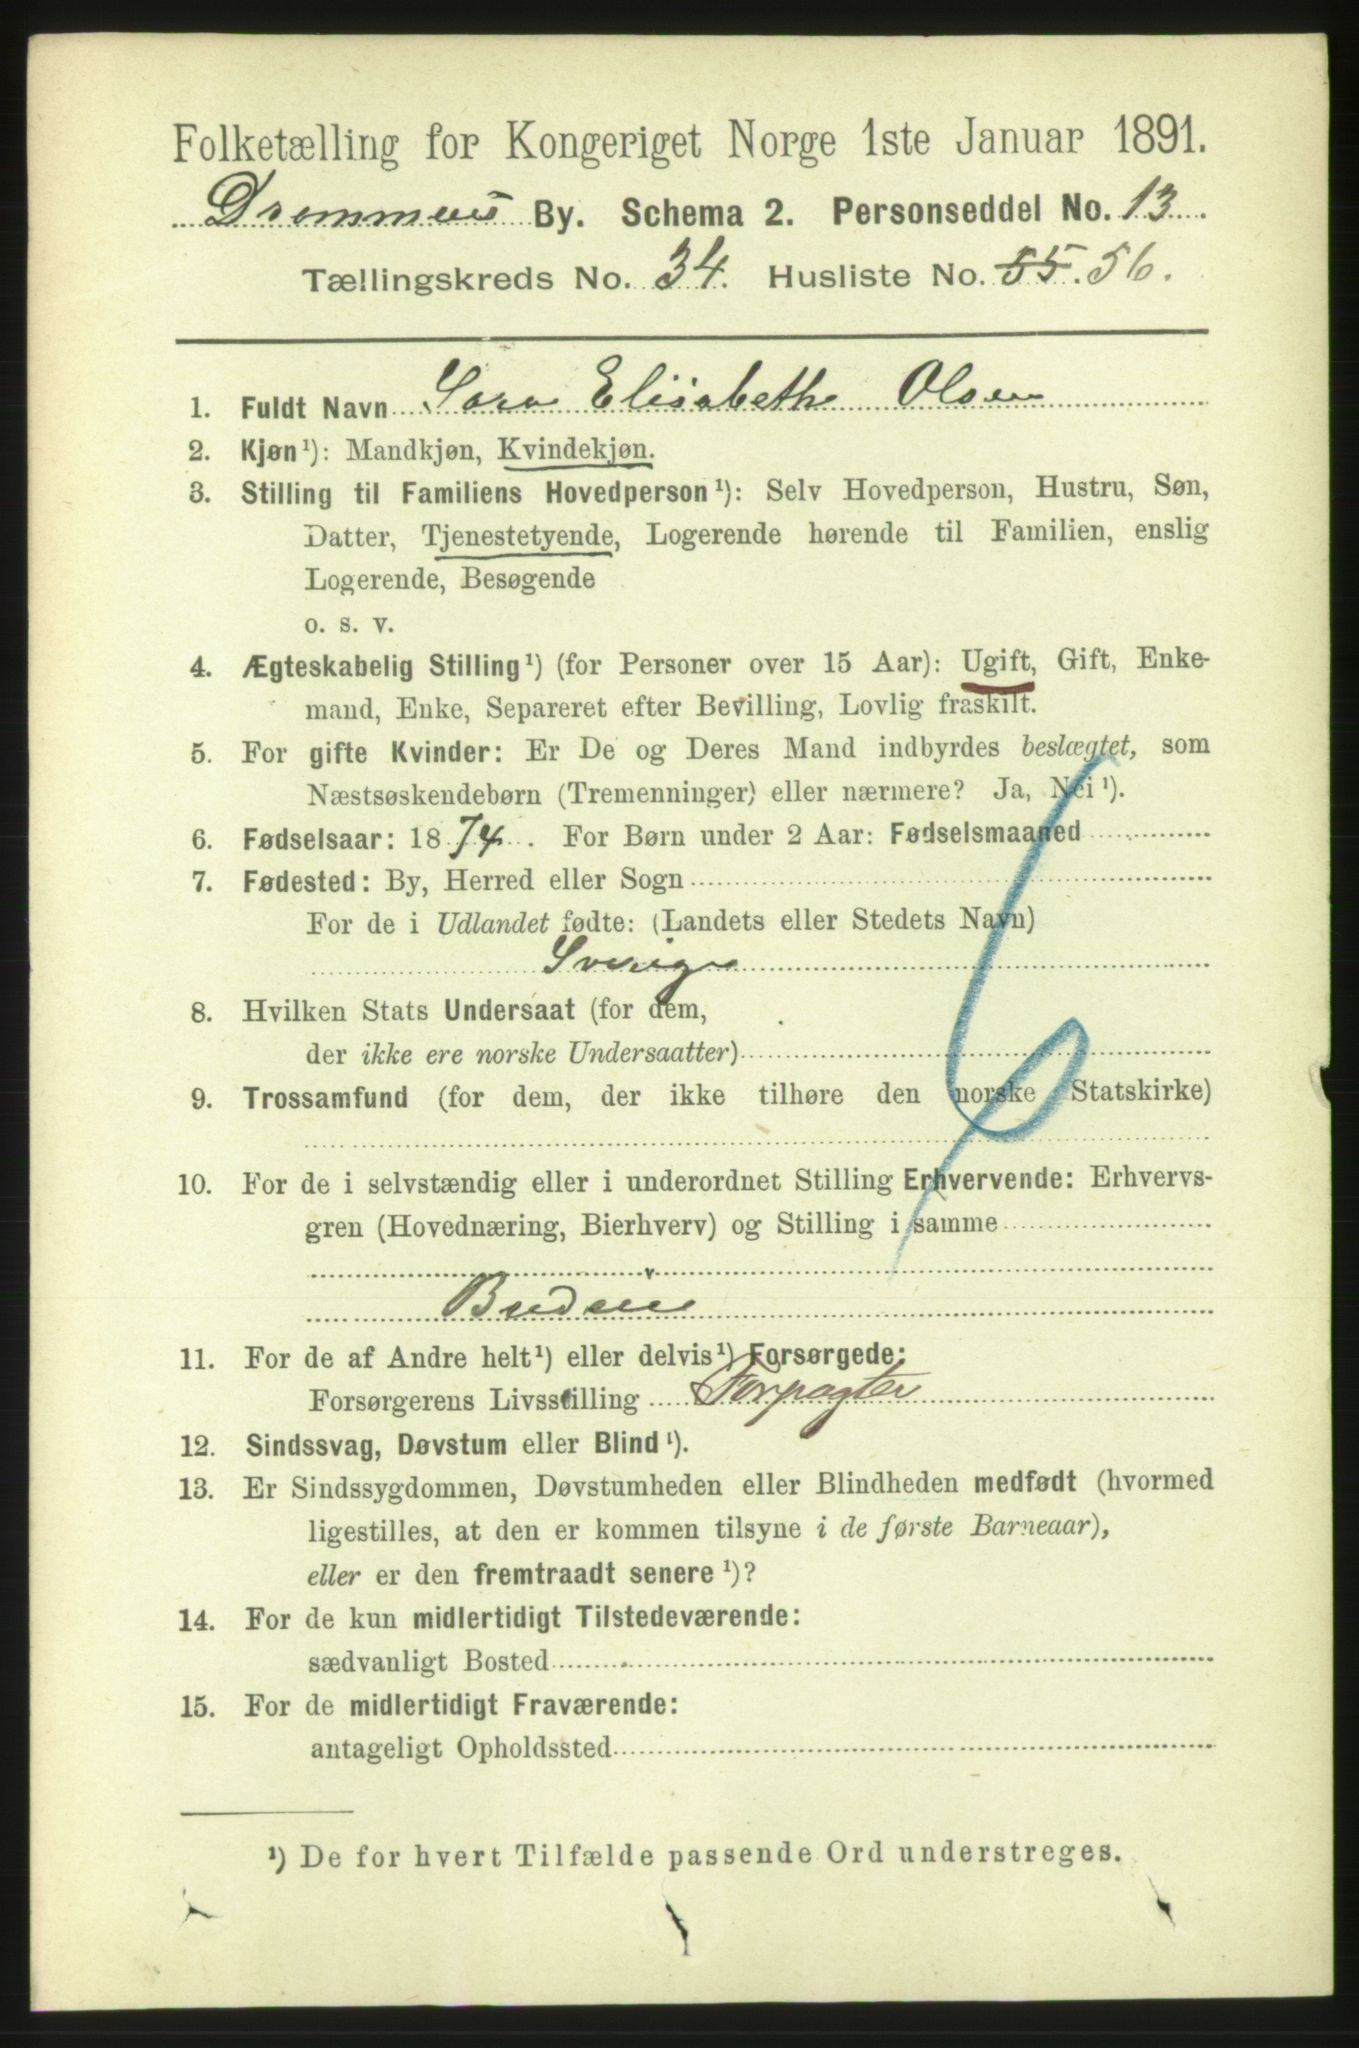 Folketælling for Kongeriget Norge 1ste Januar 1891.
Drammens By. Schema 2. Personseddel No. 13
Tællingskreds No. 34. Husliste No. 55. 56.
1. Fuldt Navn Sara Elisabeth Olsen
2. Kjøn¹): Mandkjøn, Kvindekjøn.
3. Stilling til Familiens Hovedperson¹): Selv Hovedperson, Hustru, Søn,
Datter, Tjenestetyende, Logerende hørende til Familien, enslig
Logerende, Besøgende
o. s. v.
4. Ægteskabelig Stilling¹) (for Personer over 15 Aar): Ugift, Gift, Enke-
mand, Enke, Separeret efter Bevilling, Lovlig fraskilt.
5. For gifte Kvinder: Er De og Deres Mand indbyrdes beslægtet, som
Næstsøskendebørn (Tremenninger) eller nærmere? Ja, Nei¹).
6. Fødselsaar: 1874. For Børn under 2 Aar: Fødselsmaaned
7. Fødested: By, Herred eller Sogn
For de i Udlandet fødte: (Landets eller Stedets Navn)
Sverige
8. Hvilken Stats Undersaat (for dem,
der ikke ere norske Undersaatter)
9. Trossamfund (for dem, der ikke tilhøre den norske Statskirke)
10. For de i selvstændig eller i underordnet Stilling Erhvervende: Erhvervs-
gren (Hovednæring, Bierhverv) og Stilling i samme
Budeie
11. For de af Andre helt¹) eller delvis¹) Forsørgede:
Forsørgerens Livsstilling Forpagter
12. Sindssvag, Døvstum eller Blind¹).
13. Er Sindssygdommen, Døvstumheden eller Blindheden medfødt (hvormed
ligestilles, at den er kommen tilsyne i de første Barneaar),
eller er den fremtraadt senere¹)?
14. For de kun midlertidigt Tilstedeværende:
sædvanligt Bosted
15. For de midlertidigt Fraværende:
antageligt Opholdssted
¹) De for hvert Tilfælde passende Ord understreges.